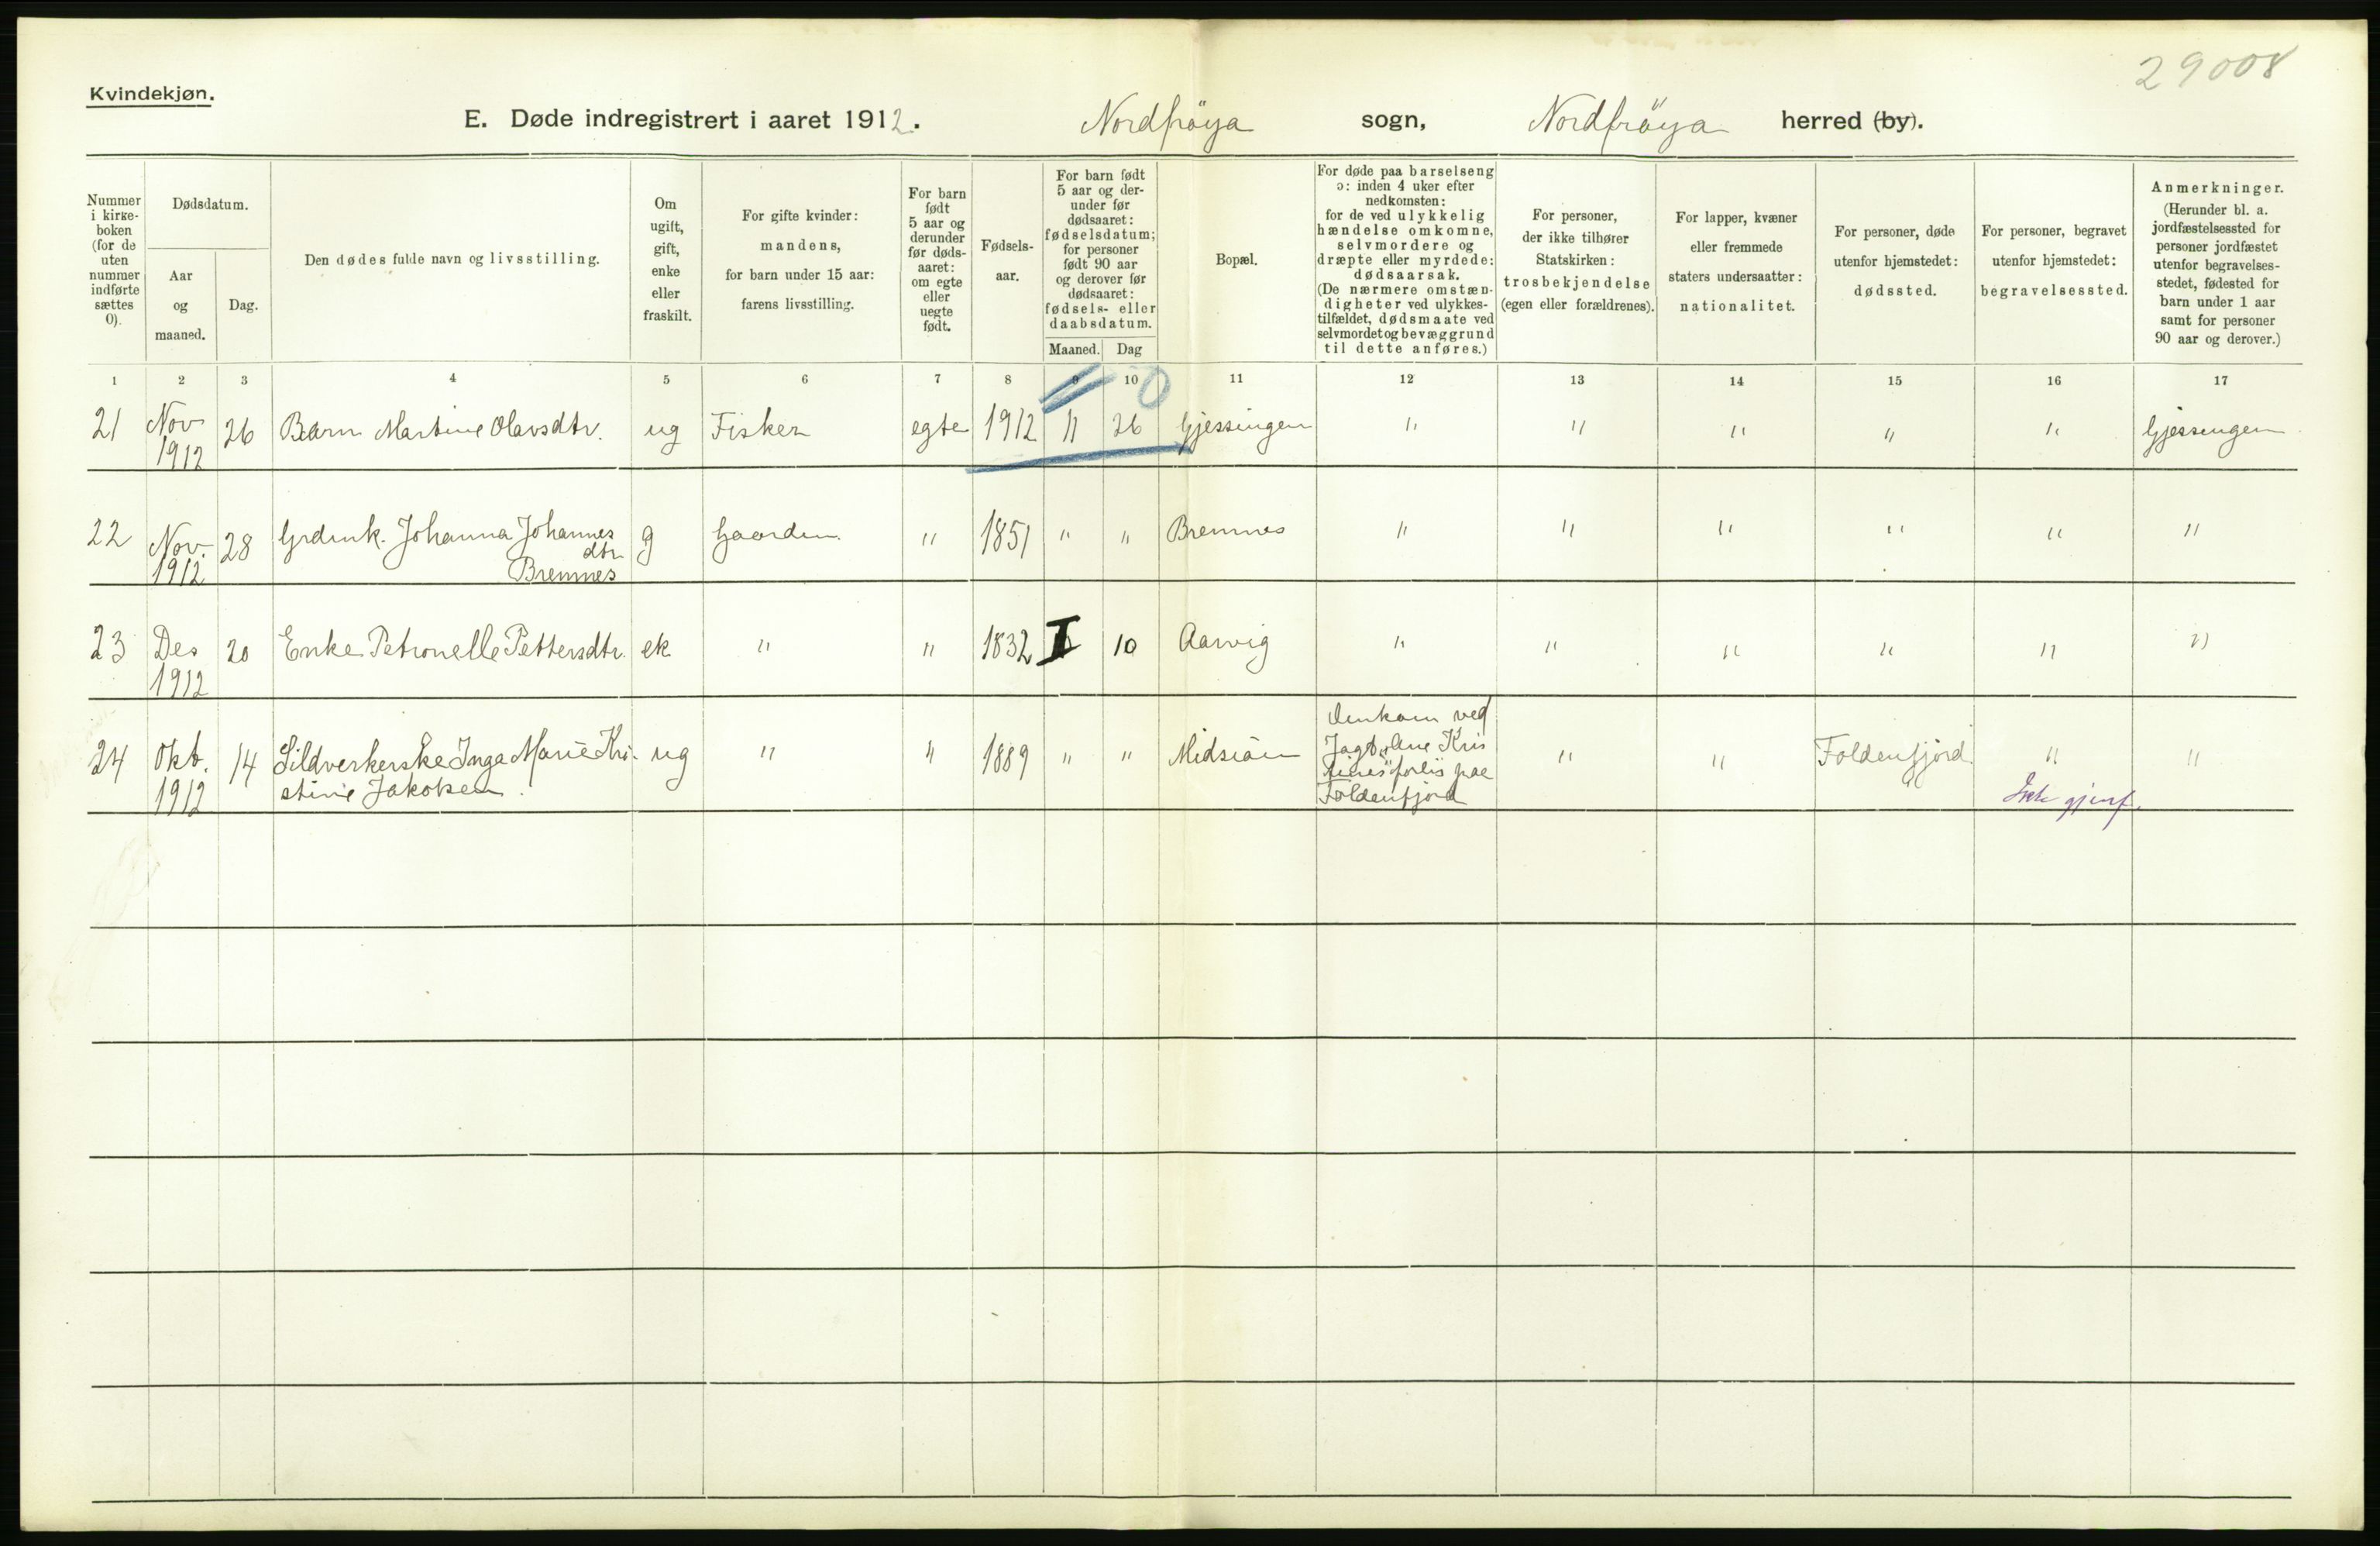 29008
Kvindekjøn.
E. Døde indregistrert i aaret 1912. Nordfröya sogn, Nordfröya herred (by).
Nummer i kirke-boken (for de uten nummer indførte sættes 0).
Dødsdatum.
Aar og maaned.
Dag.
Den dødes fulde navn og livsstilling.
Om ugift, gift, enke eller fraskilt.
For gifte kvinder: mandens, for barn under 15 aar: farens livsstilling.
For barn født 5 aar og derunder før døds-aaret: om egte eller uegte født.
Fødsels-aar.
For barn født 5 aar og der-under før dødsaaret: fødselsdatum; for personer født 90 aar og derover før dødsaaret: fødsels- eller daabsdatum.
Maaned. Dag
Bopæl.
For døde paa barselseng ɔ: inden 4 uker efter nedkomsten: for de ved ulykkelig hændelse omkomne, selvmordere og dræpte eller myrdede: dødsaarsak. (De nærmere omstæn-digheter ved ulykkes-tilfældet, dødsmaate ved selvmordet og bevæggrund til dette anføres.)
For personer, der ikke tilhører Statskirken: trosbekjendelse (egen eller forældrenes).
For lapper, kvæner eller fremmede staters undersaatter: nationalitet.
For personer, døde utenfor hjemstedet: dødssted.
For personer, begravet utenfor hjemstedet: begravelsessted.
Anmerkninger. (Herunder bl. a. jordfæstelsessted for personer jordfæstet utenfor begravelses-stedet, fødested for barn under 1 aar samt for personer 90 aar og derover.)
1 2 3 4 5 6 7 8 9 10 11 12 13 14 15 16 17
0
21 Nov 1912 26 Barn Martine Olavsdtr. ug Fisker egte 1912 11 26 Gjessingen " " " " " Gjessingen
22 Nov. 1912 28 Grdmk. Johanna Johannes dtr Bremnes g Gaardm. " 1851 " " Bremnes " " " " " "
23 Des 1912 20 Enke Petronelle Pettersdtr. ek " " 1832 10 Aarvig " " " " " "
24 Okt. 1912 14 Sildverkerske Inga Marie Kri-stine Jakobsen. ug " " 1889 " " Midsian Omkom ved Jagt „Ane Kris tines" forlis paa Foldenfjord " " Foldenfjord " "
Ikke gjenf.